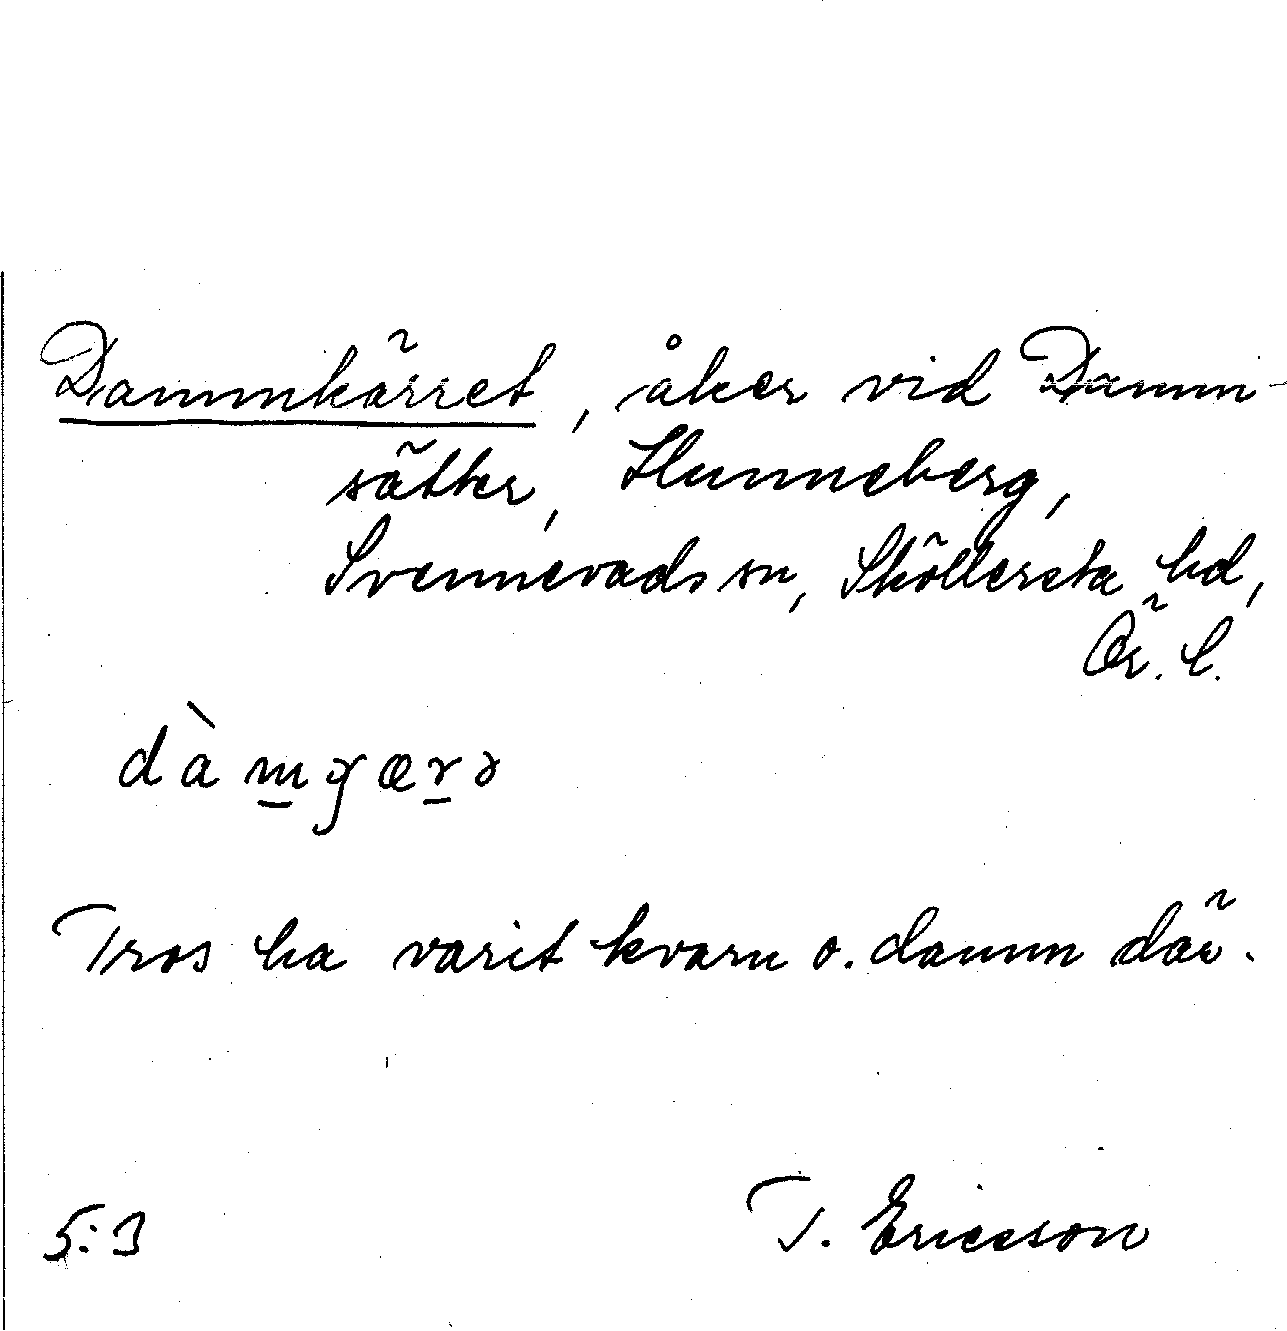 Dammkärret, åker vid Damm-
sätter, Hunneberg,
Svennevads sn, Sköllersta hd,
Ör. l.
dàm̲gær̲ə
Tros ha varit kvarn o. damm där.
5:3 T. Ericsson